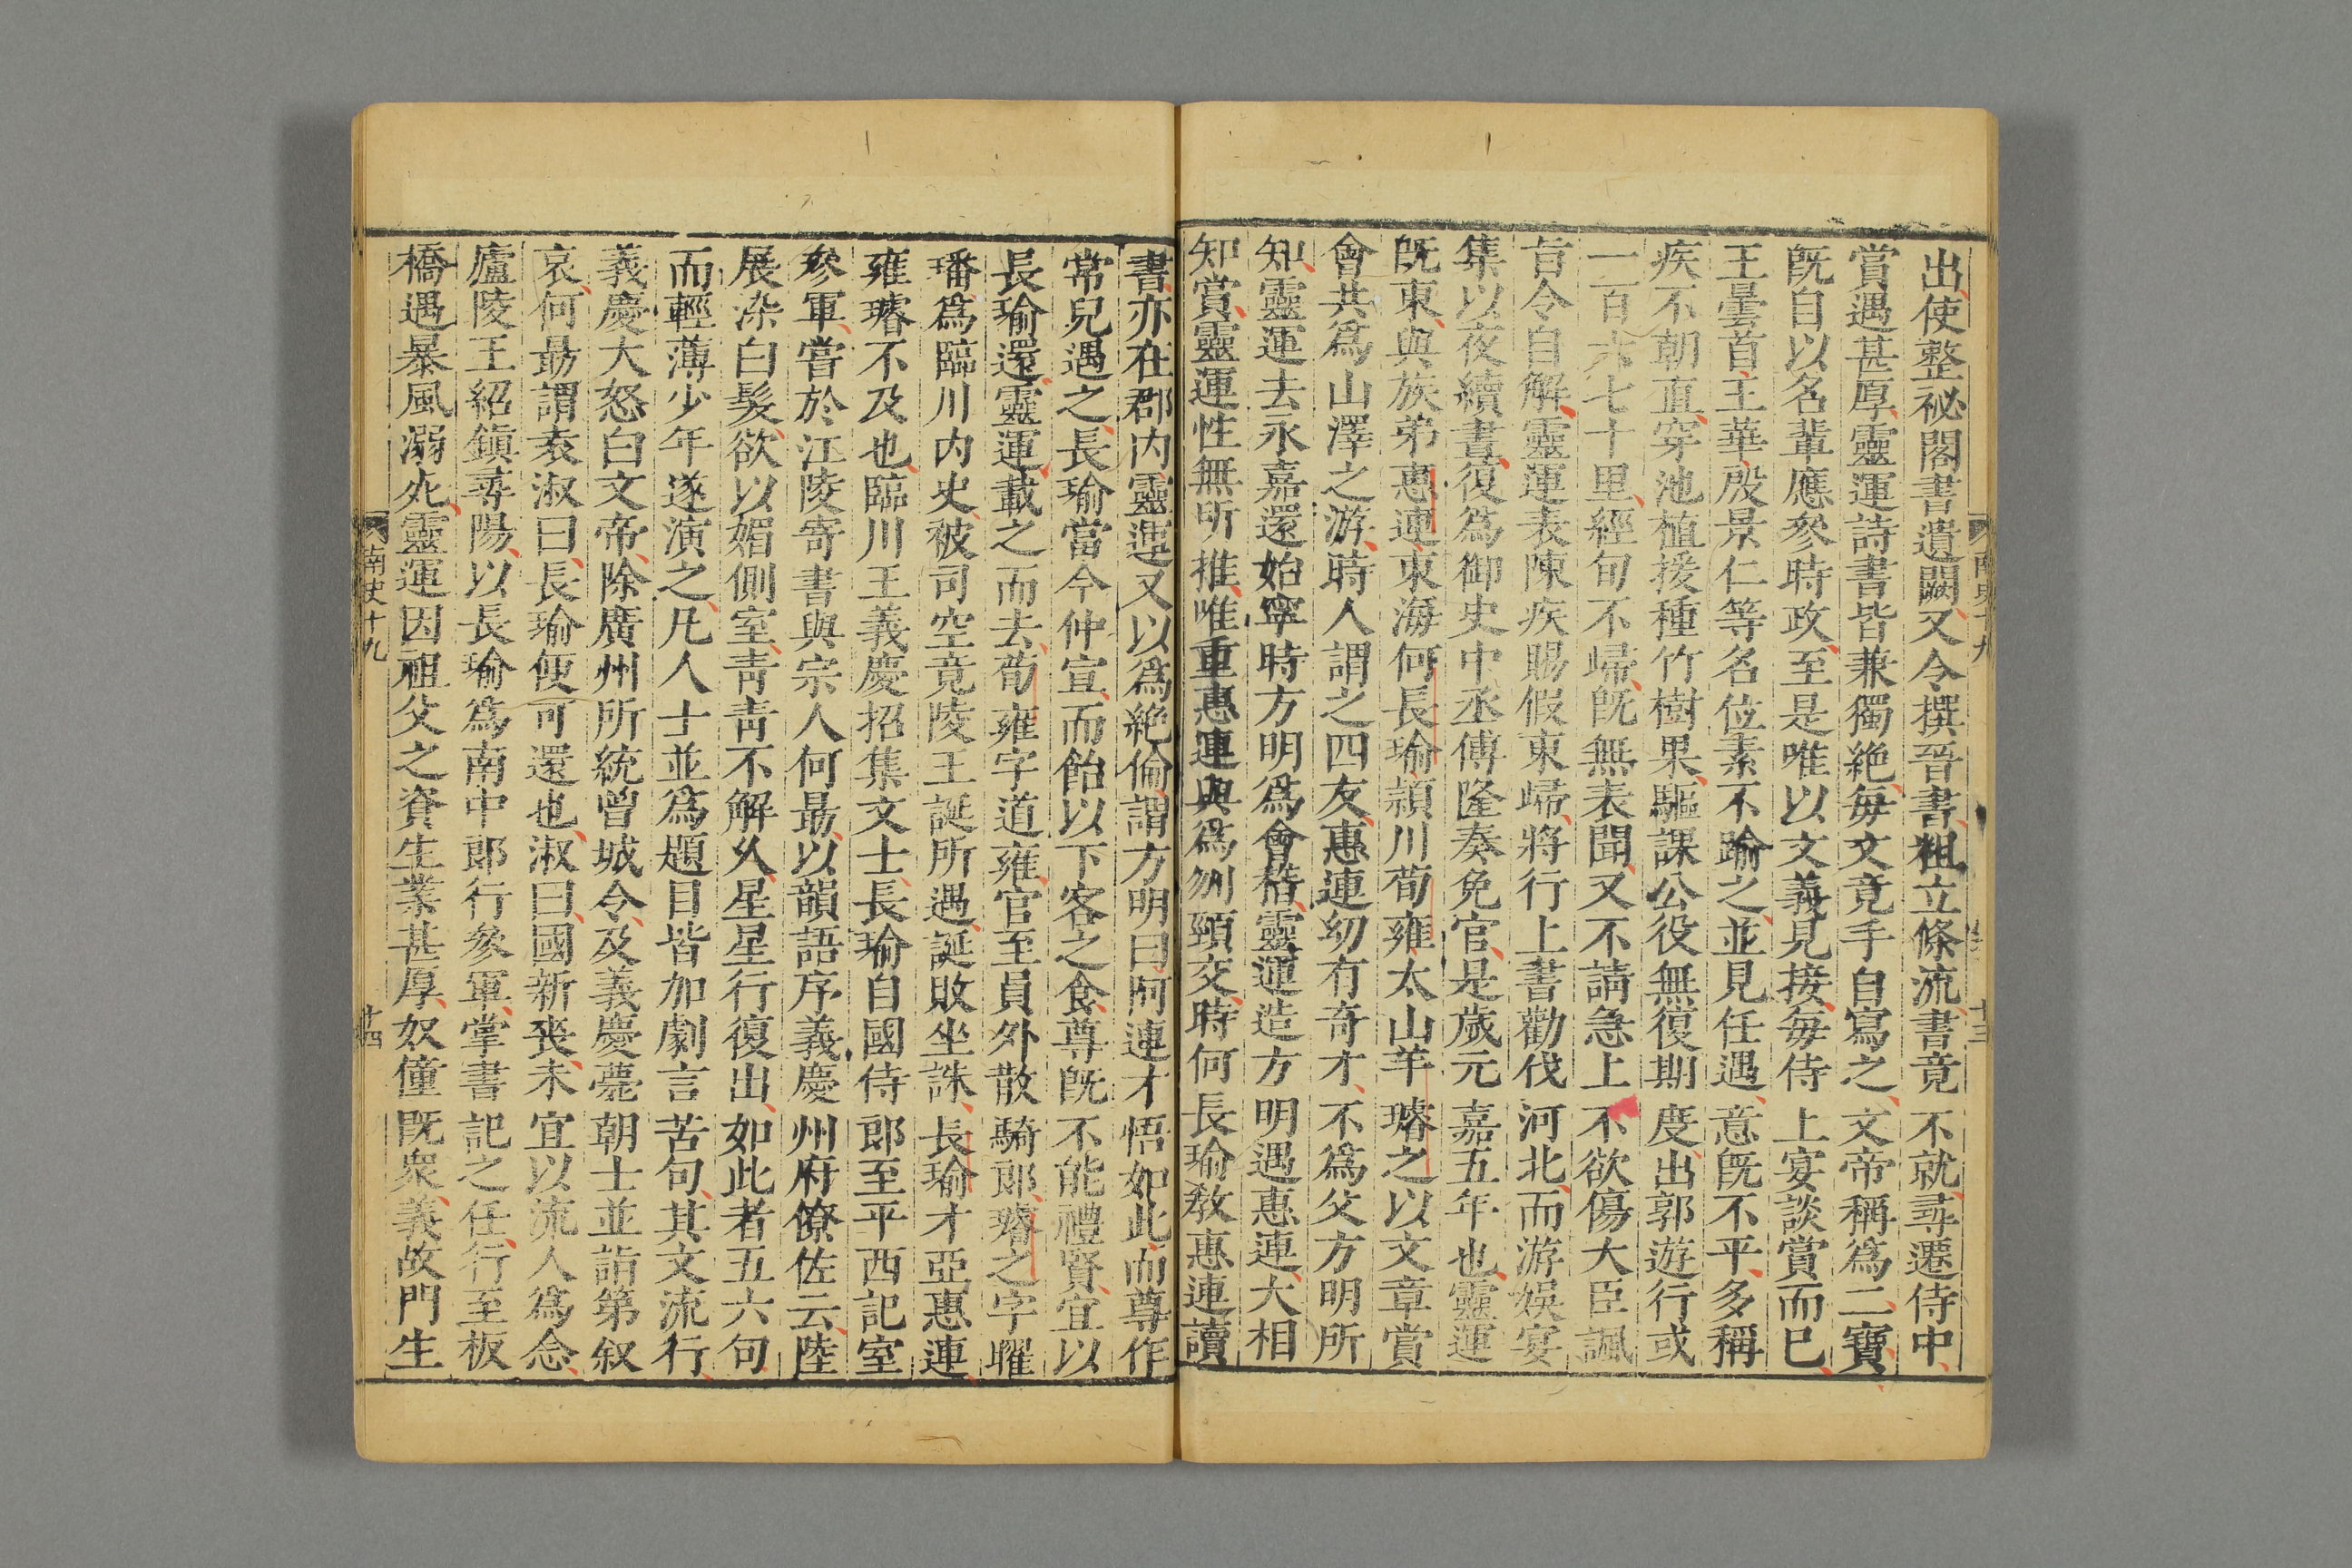 出使整祕閣書遺闕又令撰晉書粗立條流書竟不就尋遷侍中
賞遇甚厚靈運詩書皆兼獨絶每文竟手自寫之文帝稱為二寶
旣自以名輩應參時政至是唯以文義見接每侍上宴談賞而已
王曇首王華殷景仁等名位素不踰之並見任遇意旣不平多稱
疾不朝直穿池植援種竹樹果驅課公役無復期度出郭遊行或
一百六七十里經旬不歸旣無表聞又不請急上不欲傷大臣諷
旨令自解靈運表陳疾賜假東歸將行上書勸伐河北而游娛宴
集以夜續晝復為御史中丞傅隆奏免官是歲元嘉五年也靈運
旣東與族弟惠連東海何長瑜潁川荀雍太山羊璿之以文章賞
會共為山澤之游時人謂之四友惠連幼有奇才不為父方明所
知靈運去永嘉還始寧時方明為會稽靈運造方明遇惠連大相
知賞靈運性無所推唯重惠連與為刎頸交時何長瑜敎惠連讀
書亦在郡内靈運又以為絶倫謂方明曰阿連才悟如此而尊作
常兒遇之長瑜當今仲宣而飴以下客之食尊旣不能禮賢宜以
長瑜還靈運載之而去荀雍字道雍官至員外散騎郎璿之字曜
璠為臨川内史被司空竟陵王誕所遇誕敗坐誅長瑜才亞惠連
雍璿不及也臨川王義慶招集文士長瑜自國侍郎至平西記室
參軍嘗於江陵寄書與宗人何勗以韻語序義慶州府僚佐云陸
展染白髮欲以媚側室靑靑不解久星星行復出如此者五六句
而輕薄少年遂演之凡人士並為題目皆加劇言苦句其文流行
義慶大怒白文帝除廣州所統曾城令及義慶薨朝士並詣第叙
哀何勗謂袁淑曰長瑜便可還也淑曰國新喪未宜以流人為念
廬陵王紹鎮尋陽以長瑜為南中郎行參軍掌書記之任行至板
橋遇暴風溺死靈運因祖父之資生業甚厚奴僮旣衆義故門生
南史十九
廿四